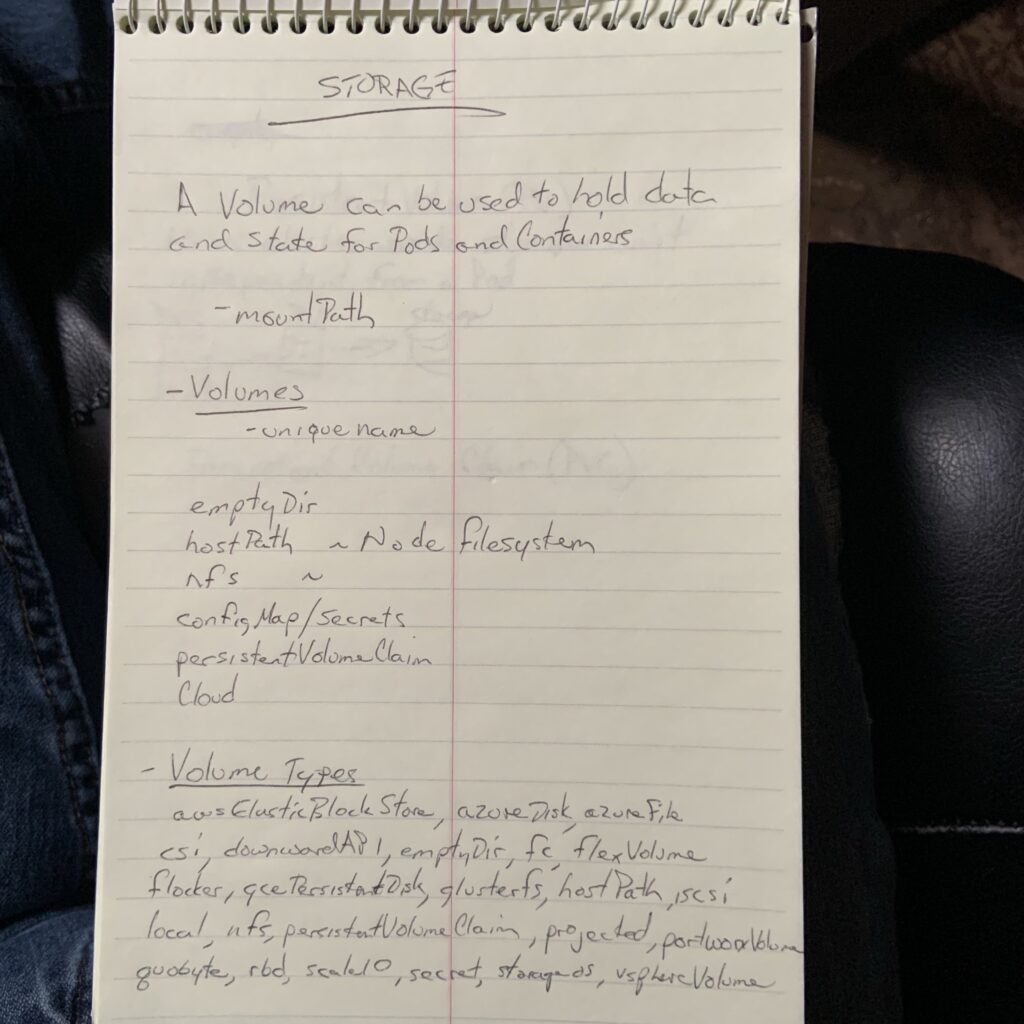 STORAGE
A Volume can be used to hold data
and state for Pods and Containers
- mountPath
- Volumes
- unique name
emptyDir
hostPath ~ Node filesystem
nfs ~
configMap/secrets
persistentVolumeClaim
Cloud
- Volume Types
awsElasticBlockStore, azureDisk, azureFile
csi, downwardAPI, emptyDir, fc, flexVolume
flocker, gcePersistentDisk, glusterfs, hostPath, iscsi
local, nfs, persistentVolumeClaim, projected, portworxVolume
quobyte, rbd, scaleIO, secret, storageos, vsphereVolume